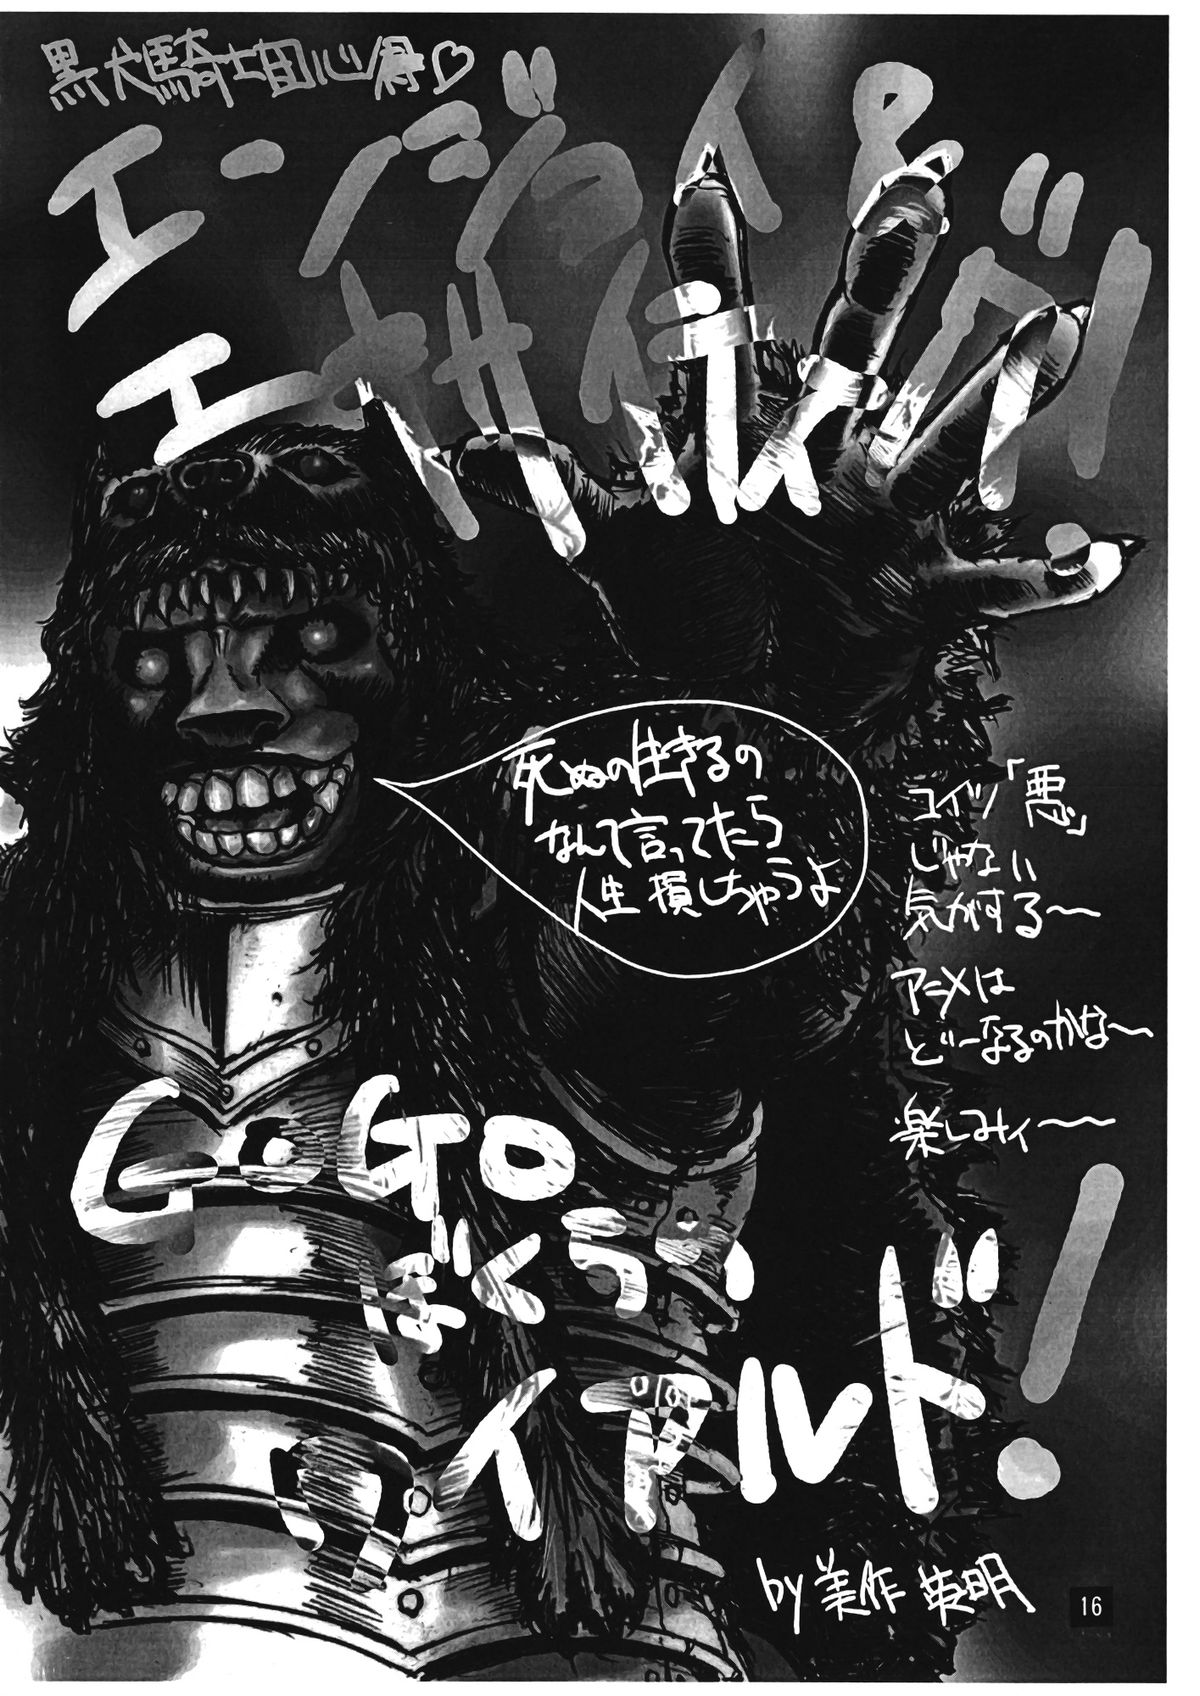 黒犬騎士団心得♡
エンジョイ&
エキサイティング!
死ぬの生きるの
なんて言ってたら
人生損しちゃうよ
コイツ「悪」
じゃない
気がする〜
アニメは
どーなるのかな〜
楽しみィ〜〜
GOGO
ぼくらの
ワイアルド!
by 美作 英明
16